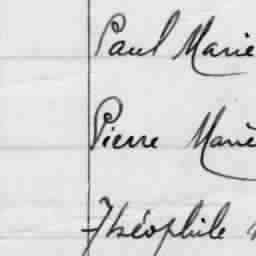 Paul Marie
Pierre Marie
Théophile